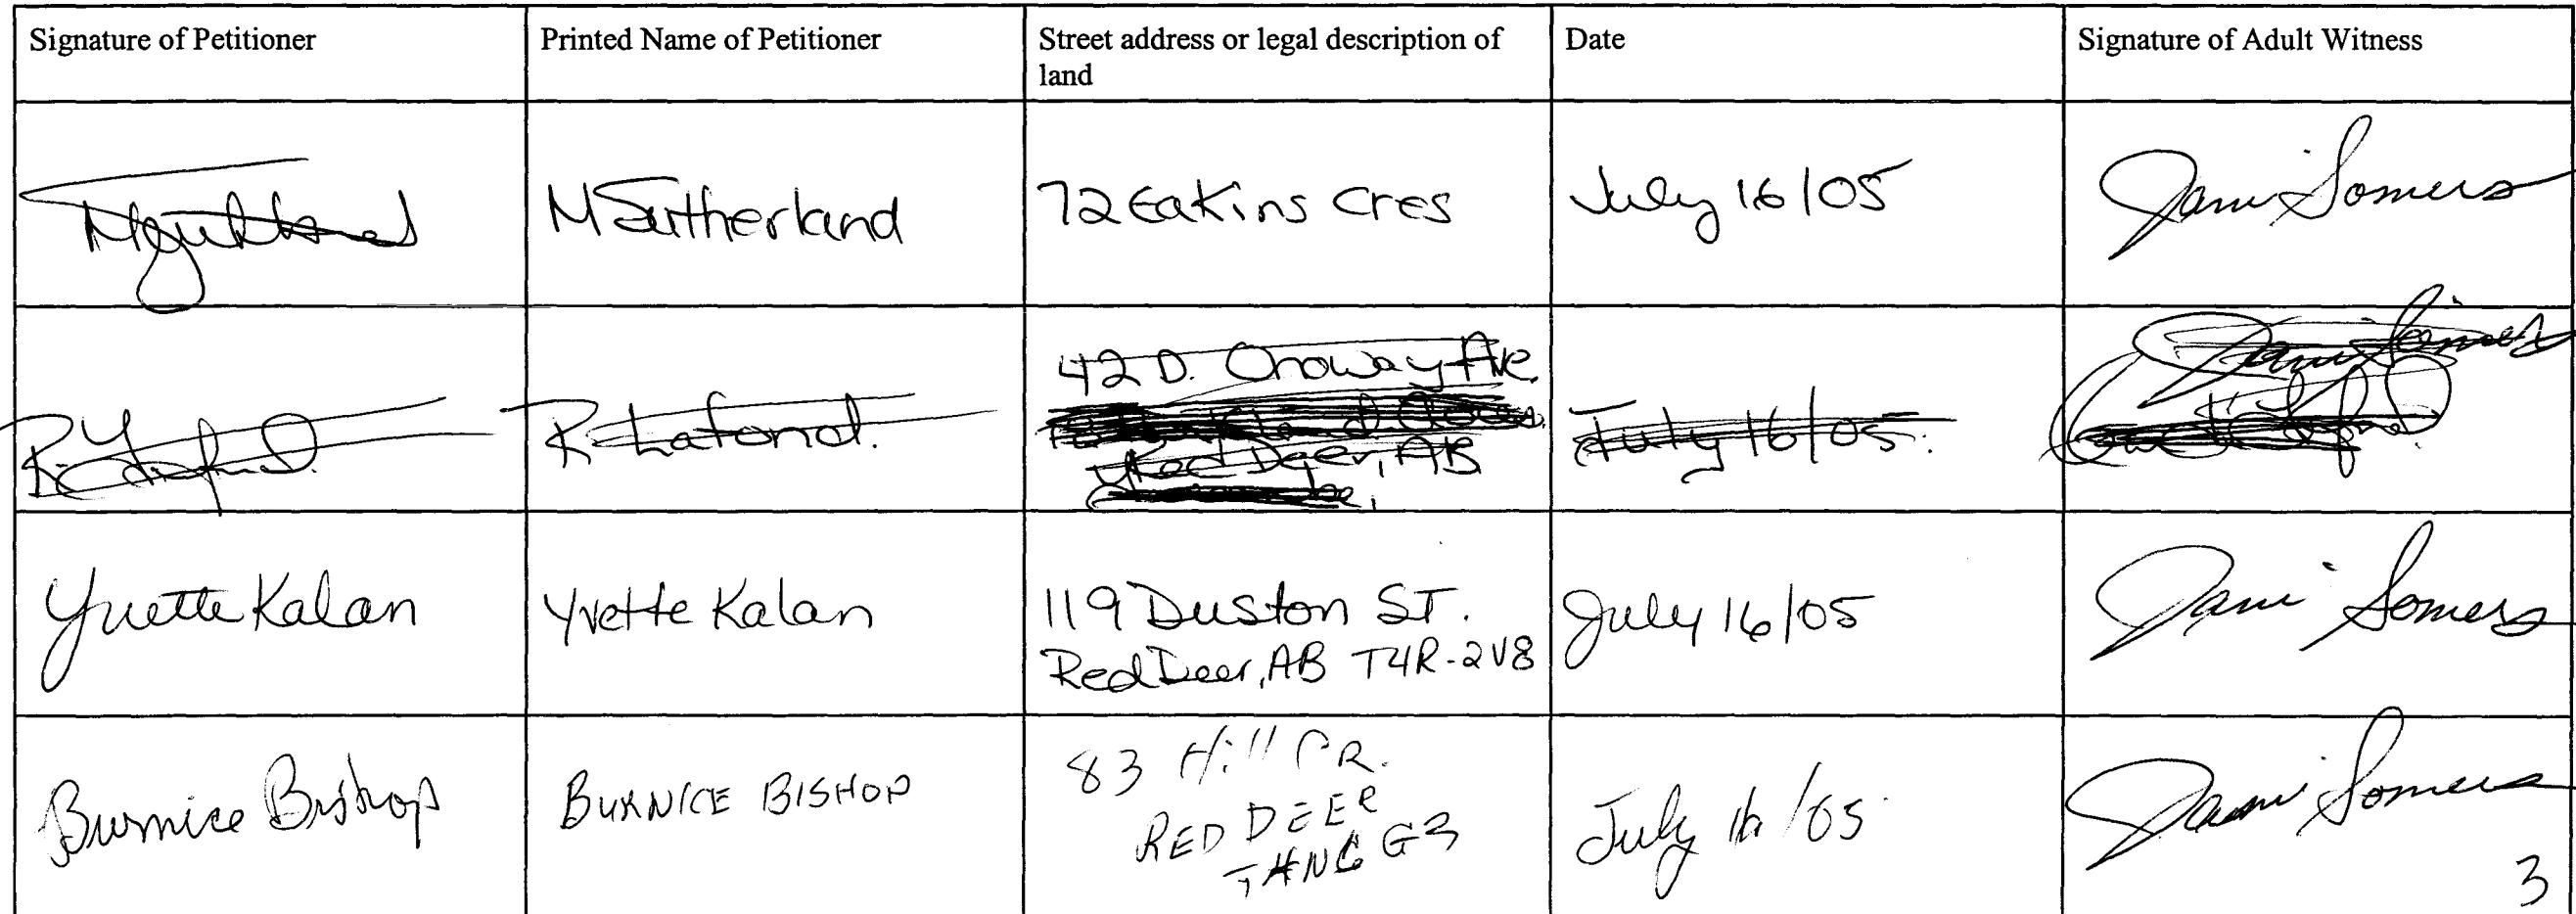 Signature of Petitioner
Printed Name of Petitioner
Street address or legal description of
land
Date
Signature of Adult Witness
MSutherland
MSutherland
72 Eakins Cres
July 16/05
Jani Somers
R Lafond
R Lafond.
42 D. Onoway Ave.
Red Deer, AB
July 16/05.
Jani Somers
Yvette Kalan
Yvette Kalan
119 Duston ST.
Red Deer, AB T4R-2V8
July 16/05
Jani Somers
Burnice Bishop
BURNICE BISHOP
83 Hill CR.
RED DEER
T4N6G3
July 16/05
Jani Somers
3